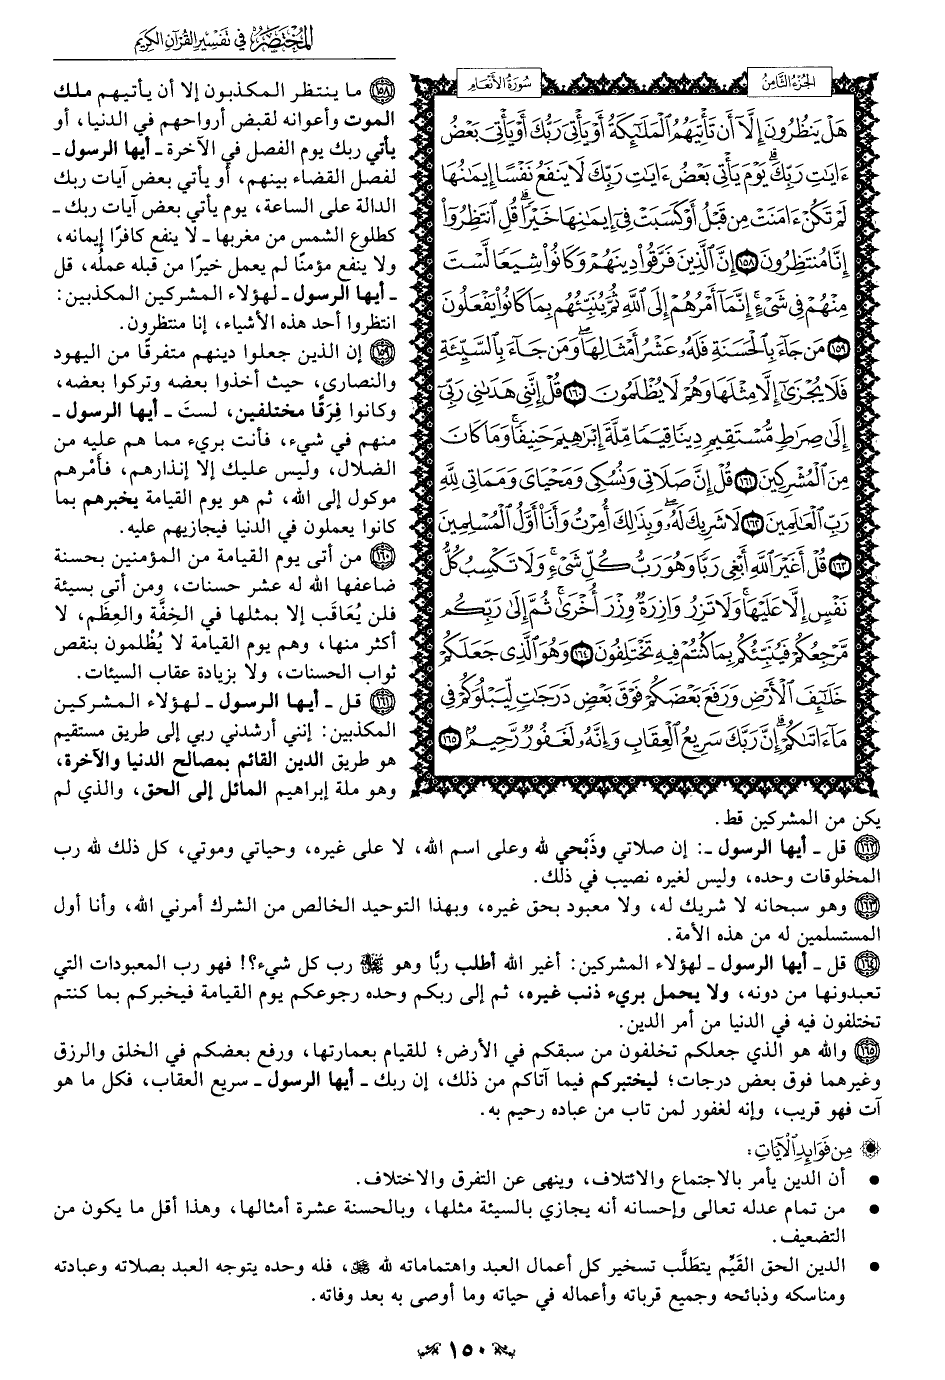 المختصر في تفسير القرآن الكريم
الجزء الثامن
سورة الأنعام
هَلۡ يَنظُرُونَ إِلَّآ أَن تَأۡتِيَهُمُ ٱلۡمَلَٰٓئِكَةُ أَوۡ يَأۡتِيَ رَبُّكَ أَوۡ يَأۡتِيَ بَعۡضُ
ءَايَٰتِ رَبِّكَۗ يَوۡمَ يَأۡتِي بَعۡضُ ءَايَٰتِ رَبِّكَ لَا يَنفَعُ نَفۡسًا إِيمَٰنُهَا
لَمۡ تَكُنۡ ءَامَنَتۡ مِن قَبۡلُ أَوۡ كَسَبَتۡ فِيٓ إِيمَٰنِهَا خَيۡرٗاۗ قُلِ ٱنتَظِرُوٓاْ
إِنَّا مُنتَظِرُونَ ١٥٨ إِنَّ ٱلَّذِينَ فَرَّقُواْ دِينَهُمۡ وَكَانُواْ شِيَعٗا لَّسۡتَ
مِنۡهُمۡ فِي شَيۡءٍۚ إِنَّمَآ أَمۡرُهُمۡ إِلَى ٱللَّهِ ثُمَّ يُنَبِّئُهُم بِمَا كَانُواْ يَفۡعَلُونَ
١٥٩ مَن جَآءَ بِٱلۡحَسَنَةِ فَلَهُۥ عَشۡرُ أَمۡثَالِهَاۖ وَمَن جَآءَ بِٱلسَّيِّئَةِ
فَلَا يُجۡزَىٰٓ إِلَّا مِثۡلَهَا وَهُمۡ لَا يُظۡلَمُونَ ١٦٠ قُلۡ إِنَّنِي هَدَىٰنِي رَبِّيٓ
إِلَىٰ صِرَٰطٖ مُّسۡتَقِيمٖ دِينٗا قِيَمٗا مِّلَّةَ إِبۡرَٰهِيمَ حَنِيفٗاۚ وَمَا كَانَ
مِنَ ٱلۡمُشۡرِكِينَ ١٦١ قُلۡ إِنَّ صَلَاتِي وَنُسُكِي وَمَحۡيَايَ وَمَمَاتِي لِلَّهِ
رَبِّ ٱلۡعَٰلَمِينَ ١٦٢ لَا شَرِيكَ لَهُۥۖ وَبِذَٰلِكَ أُمِرۡتُ وَأَنَا۠ أَوَّلُ ٱلۡمُسۡلِمِينَ
١٦٣ قُلۡ أَغَيۡرَ ٱللَّهِ أَبۡغِي رَبّٗا وَهُوَ رَبُّ كُلِّ شَيۡءٖۚ وَلَا تَكۡسِبُ كُلُّ
نَفۡسٍ إِلَّا عَلَيۡهَاۚ وَلَا تَزِرُ وَازِرَةٞ وِزۡرَ أُخۡرَىٰۚ ثُمَّ إِلَىٰ رَبِّكُم
مَّرۡجِعُكُمۡ فَيُنَبِّئُكُم بِمَا كُنتُمۡ فِيهِ تَخۡتَلِفُونَ ١٦٤ وَهُوَ ٱلَّذِي جَعَلَكُمۡ
خَلَٰٓئِفَ ٱلۡأَرۡضِ وَرَفَعَ بَعۡضَكُمۡ فَوۡقَ بَعۡضٖ دَرَجَٰتٖ لِّيَبۡلُوَكُمۡ فِي
مَآ ءَاتَىٰكُمۡۗ إِنَّ رَبَّكَ سَرِيعُ ٱلۡعِقَابِ وَإِنَّهُۥ لَغَفُورٞ رَّحِيمُۢ ١٦٥
١٥٨ ما ينتظر المكذبون إلا أن يأتيهم ملك
الموت وأعوانه لقبض أرواحهم في الدنيا، أو
يأتي ربك يوم الفصل في الآخرة ـ أيها الرسول ـ
لفصل القضاء بينهم، أو يأتي بعض آيات ربك
الدالة على الساعة، يوم يأتي بعض آيات ربك ـ
كطلوع الشمس من مغربها ـ لا ينفع كافرًا إيمانه،
ولا ينفع مؤمنًا لم يعمل خيرًا من قبله عمله، قل
ـ أيها الرسول ـ لهؤلاء المشركين المكذبين:
انتظروا أحد هذه الأشياء، إنا منتظرون.
١٥٩ إن الذين جعلوا دينهم متفرقًا من اليهود
والنصارى، حيث أخذوا بعضه وتركوا بعضه،
وكانوا فِرَقًا مختلفين، لستَ ـ أيها الرسول ـ
منهم في شيء، فأنت بريء مما هم عليه من
الضلال، وليس عليك إلا إنذارهم، فأَمْرهم
موكول إلى الله، ثم هو يوم القيامة يخبرهم بما
كانوا يعملون في الدنيا فيجازيهم عليه.
١٦٠ من أتى يوم القيامة من المؤمنين بحسنة
ضاعفها الله له عشر حسنات، ومن أتى بسيئة
فلن يُعاقَب إلا بمثلها في الخِفَّة والعِظَم، لا
أكثر منها، وهم يوم القيامة لا يُظْلمون بنقص
ثواب الحسنات، ولا بزيادة عقاب السيئات.
١٦١ قل ـ أيها الرسول ـ لهؤلاء المشركين
المكذبين: إنني أرشدني ربي إلى طريق مستقيم
هو طريق الدين القائم بمصالح الدنيا والآخرة،
وهو ملة إبراهيم المائل إلى الحق، والذي لم
يكن من المشركين قط.
١٦٢ قل ـ أيها الرسول ـ: إن صلاتي وذَبْحي لله وعلى اسم الله، لا على غيره، وحياتي وموتي، كل ذلك لله رب
المخلوقات وحده، وليس لغيره نصيب في ذلك.
١٦٣ وهو سبحانه لا شريك له، ولا معبود بحق غيره، وبهذا التوحيد الخالص من الشرك أمرني الله، وأنا أول
المستسلمين له من هذه الأمة.
١٦٤ قل ـ أيها الرسول ـ لهؤلاء المشركين: أغير الله أطلب ربًّا وهو ﷻ رب كل شيء؟! فهو رب المعبودات التي
تعبدونها من دونه، ولا يحمل بريء ذنب غيره، ثم إلى ربكم وحده رجوعكم يوم القيامة فيخبركم بما كنتم
تختلفون فيه في الدنيا من أمر الدين.
١٦٥ والله هو الذي جعلكم تخلفون من سبقكم في الأرض؛ للقيام بعمارتها، ورفع بعضكم في الخلق والرزق
وغيرهما فوق بعض درجات؛ ليختبركم فيما آتاكم من ذلك، إن ربك ـ أيها الرسول ـ سريع العقاب، فكل ما هو
آت فهو قريب، وإنه لغفور لمن تاب من عباده رحيم به.
من فوائد الآيات:
• أن الدين يأمر بالاجتماع والائتلاف، وينهى عن التفرق والاختلاف.
• من تمام عدله تعالى وإحسانه أنه يجازي بالسيئة مثلها، وبالحسنة عشرة أمثالها، وهذا أقل ما يكون من
التضعيف.
• الدين الحق القَيِّم يتطَلَّب تسخير كل أعمال العبد واهتماماته لله ﷻ، فله وحده يتوجه العبد بصلاته وعبادته
ومناسكه وذبائحه وجميع قرباته وأعماله في حياته وما أوصى به بعد وفاته.
١٥٠